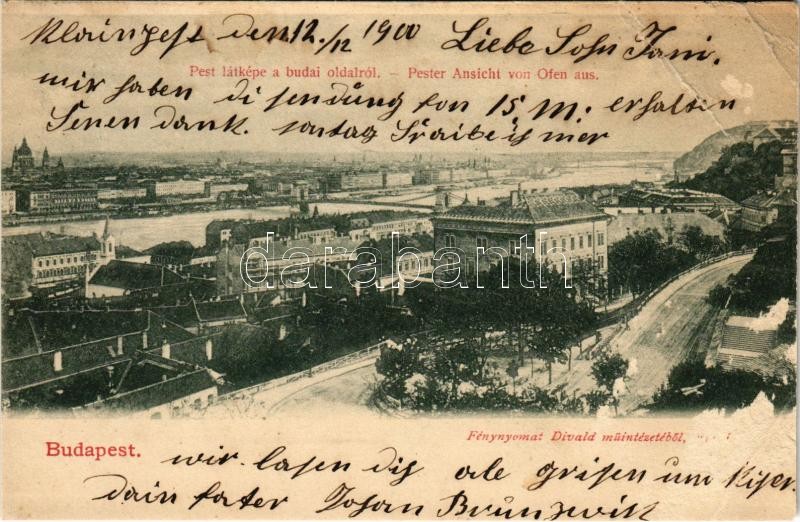 Klainpest den 12./12 1900 Liebe Sohn Jani.
Pest látképe a budai oldalról. – Pester Ansicht von Ofen aus.
mir haben di sendung fon 15 M. erhalten
Senen dank. sontag Sraibe ich mer
darabanth.com
Budapest.
Fénynyomat Divald müintézetéből,
wir lasen dig ale grisen um Kiser
dain fater Johan Brunzwik